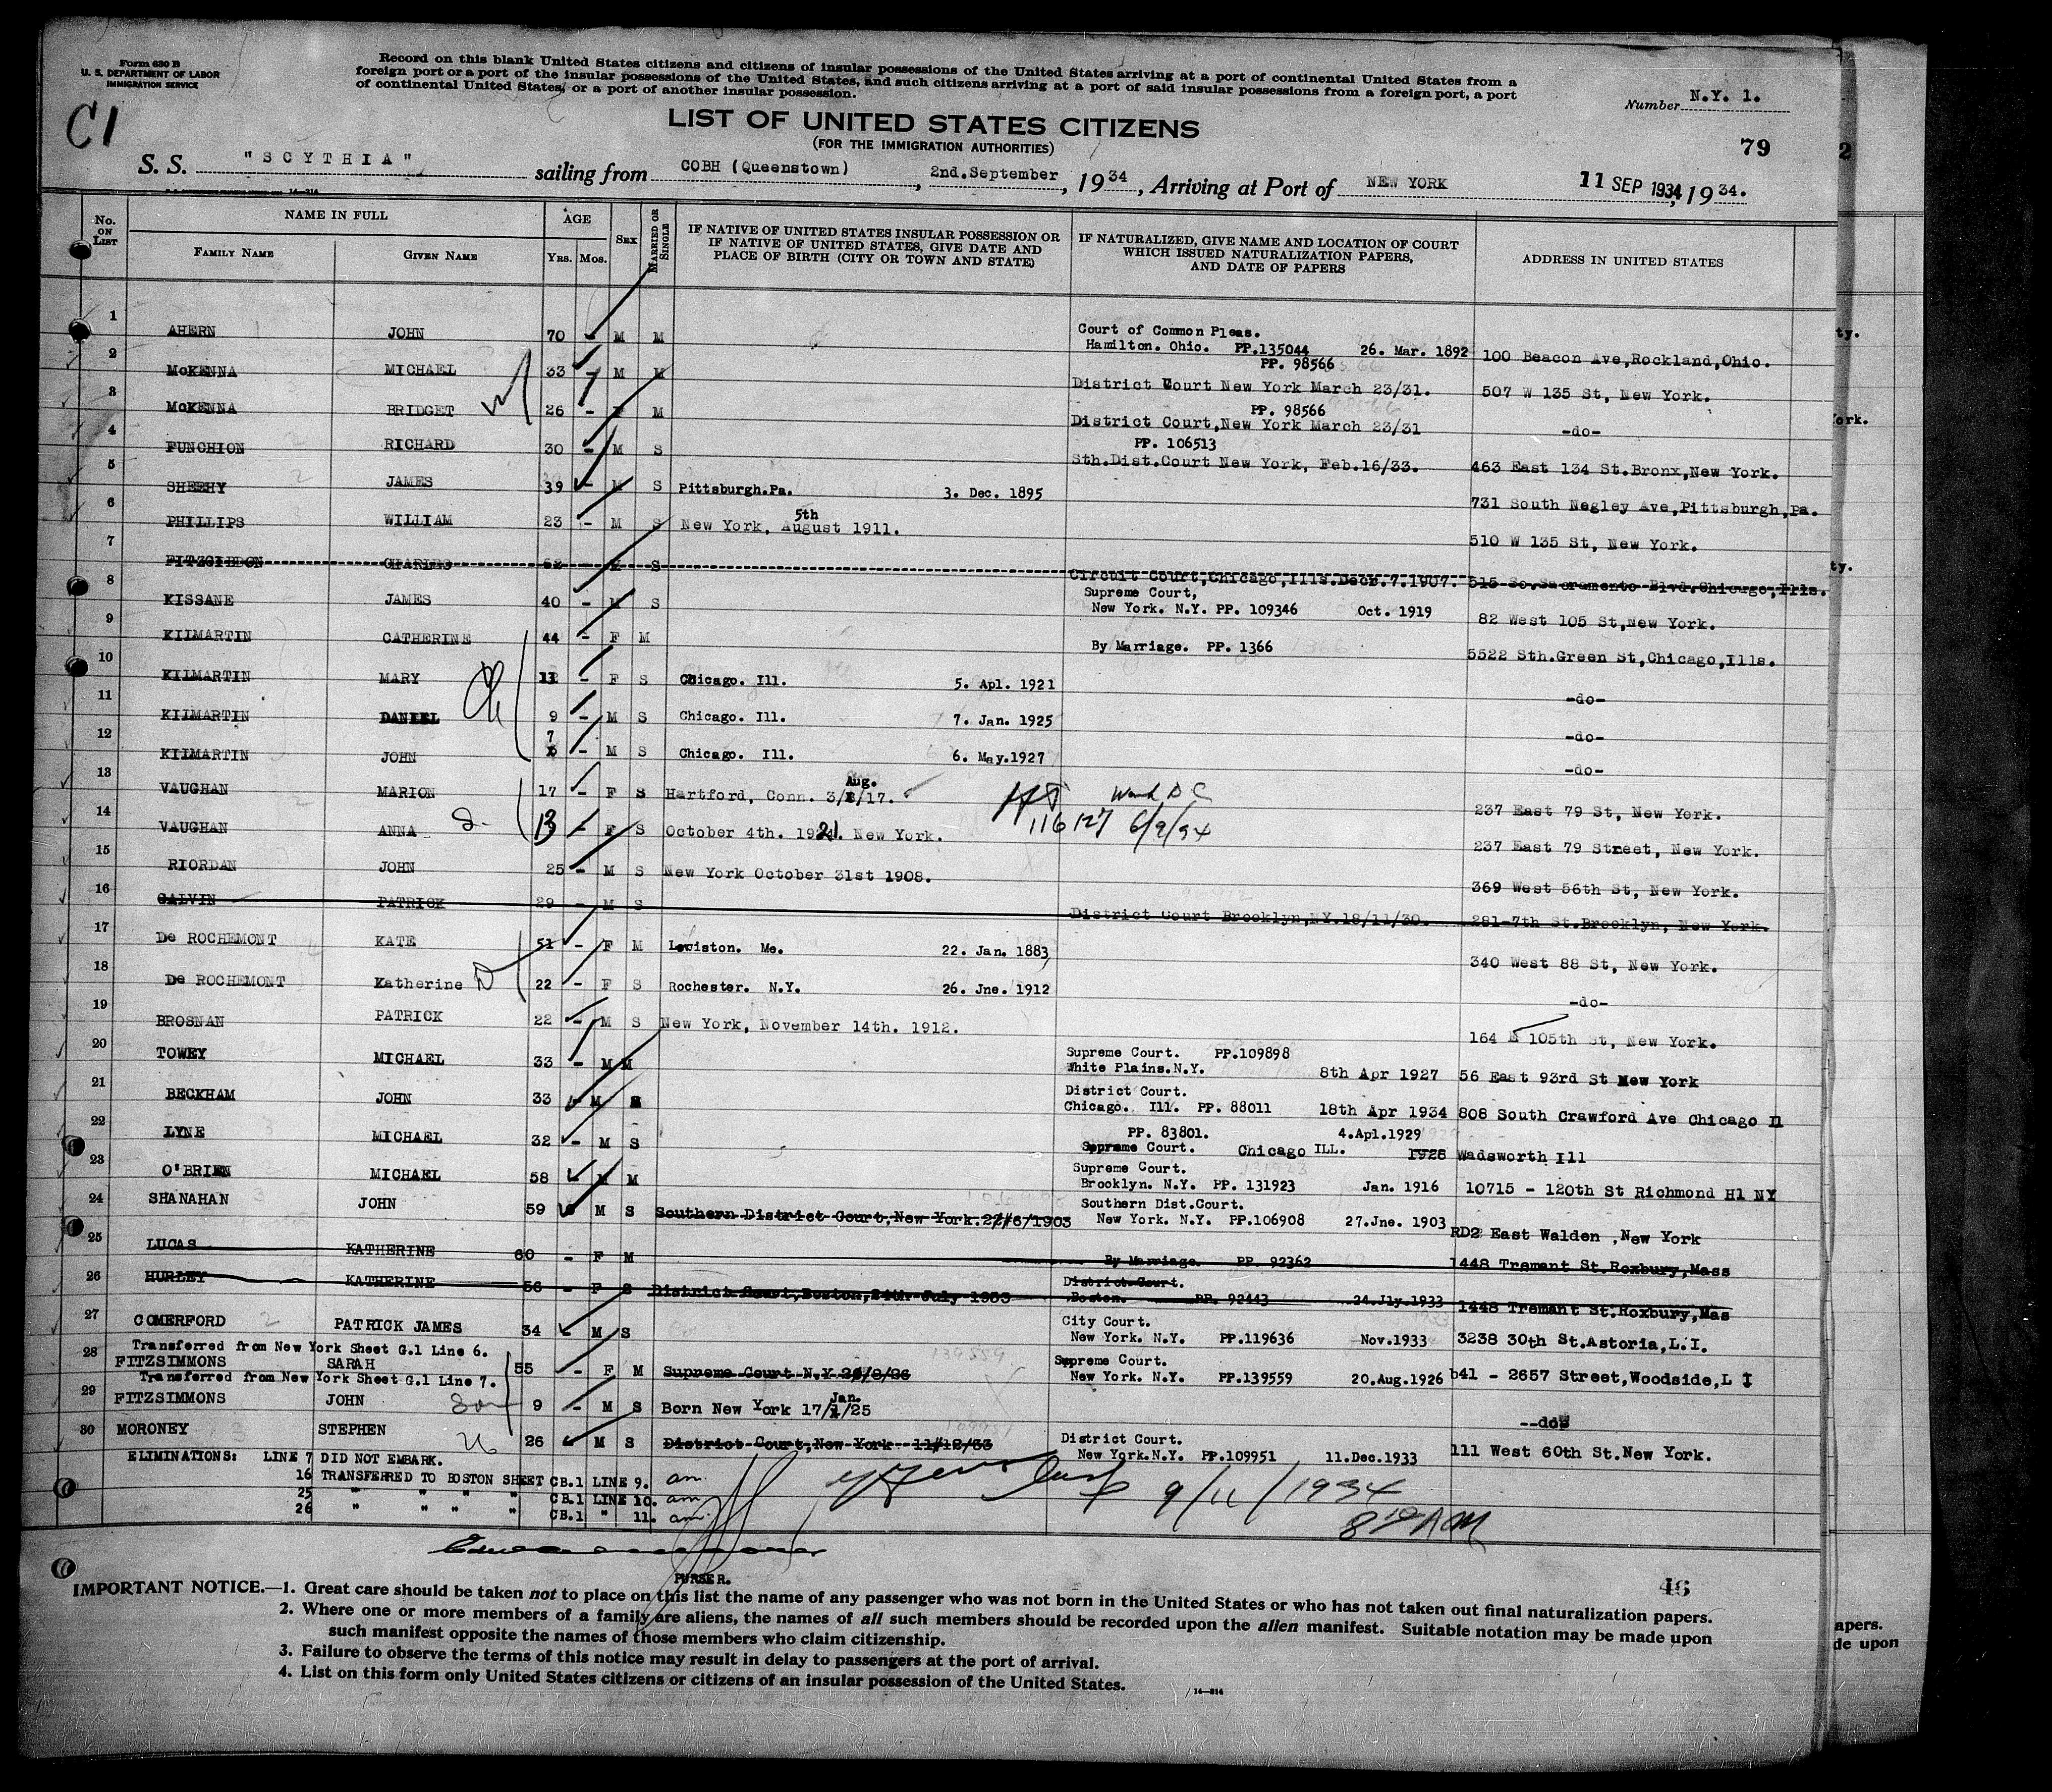 Form 630 B
U. S. DEPARTMENT OF LABOR
IMMIGRATION SERVICE
Record on this blank United States citizens and citizens of insular possessions of the United States arriving at a port of continental United States from a
foreign port or a port of the insular possessions of the United States, and such citizens arriving at a port of said insular possessions from a foreign port, a port
of continental United States, or a port of another insular possession.
Number N.Y. 1.
C1
LIST OF UNITED STATES CITIZENS
(FOR THE IMMIGRATION AUTHORITIES)
79
2
S. S. "SCYTHIA" sailing from COBH (Queenstown), 2nd.September, 1934, Arriving at Port of NEW YORK 11 SEP 1934, 1934.
No. ON LIST NAME IN FULL AGE SEX MARRIED OR SINGLE IF NATIVE OF UNITED STATES INSULAR POSSESSION OR IF NATIVE OF UNITED STATES, GIVE DATE AND PLACE OF BIRTH (CITY OR TOWN AND STATE) IF NATURALIZED, GIVE NAME AND LOCATION OF COURT WHICH ISSUED NATURALIZATION PAPERS, AND DATE OF PAPERS ADDRESS IN UNITED STATES
FAMILY NAME GIVEN NAME YRS. MOS.
1 AHERN JOHN 70 - M M Court of Common Pleas. Hamilton. Ohio. PP.135044 26. Mar. 1892 100 Beacon Ave,Rockland,Ohio.
2 McKENNA MICHAEL 33 - M M PP. 98566 District Court New York March 23/31. 507 W 135 St, New York.
3 McKENNA BRIDGET 26 - F M PP. 98566 District Court,New York March 23/31 -do-
4 FUNCHION RICHARD 30 - M S PP. 106513 Sth.Dist.Court New York, Feb.16/33. 463 East 134 St.Bronx,New York.
5 SHEEHY JAMES 39 - M S Pittsburgh.Pa. 3. Dec. 1895 731 South Negley Ave,Pittsburgh,Pa.
6 PHILLIPS WILLIAM 23 - M S New York, 5th August 1911. 510 W 135 St, New York.
7 FITZGIBBON CHARLES 52 - M S Circuit Court,Chicago,Ills.Dec.7.1907. 515 So.Sacramento Blvd.Chicago,Ills.
8 KISSANE JAMES 40 - M S Supreme Court, New York. N.Y. PP. 109346 Oct. 1919 82 West 105 St,New York.
9 KILMARTIN CATHERINE 44 - F M By Marriage. PP. 1366 5522 Sth.Green St,Chicago,Ills.
10 KILMARTIN MARY 13 - F S Chicago. Ill. 5. Apl. 1921 -do-
11 KILMARTIN DANIEL 9 - M S Chicago. Ill. 7. Jan. 1925 -do-
12 KILMARTIN JOHN 7 - M S Chicago. Ill. 6. May.1927 -do-
13 VAUGHAN MARION 17 - F S Hartford, Conn. 3/8/17. Aug. Wash D C 237 East 79 St, New York.
14 VAUGHAN ANNA 13 - F S October 4th. 1921. New York. 116127 6/9/34 237 East 79 Street, New York.
15 RIORDAN JOHN 25 - M S New York October 31st 1908. 369 West 56th St, New York.
16 GALVIN PATRICK 29 - M S District Court Brooklyn,NY.18/11/30. 281-7th St.Brooklyn, New York.
17 De ROCHEMONT KATE 51 - F M Lewiston. Me. 22. Jan. 1883 340 West 88 St, New York.
18 De ROCHEMONT Katherine D 22 - F S Rochester. N.Y. 26. Jne. 1912 -do-
19 BROSNAN PATRICK 22 - M S New York, November 14th. 1912. 164 E 105th St, New York.
20 TOWEY MICHAEL 33 - M M Supreme Court. PP.109898 White Plains.N.Y. 8th Apr 1927 56 East 93rd St New York
21 BECKHAM JOHN 33 - M S District Court. Chicago. Ill. PP. 88011 18th Apr 1934 808 South Crawford Ave Chicago Il
22 LYNE MICHAEL 32 - M S PP. 83801. 4.Apl.1929 Supreme Court. Chicago ILL. 1928 Wadsworth Ill
23 O'BRIEN MICHAEL 58 - M M Supreme Court. Brooklyn. N.Y. PP. 131923 Jan. 1916 10715 - 120th St Richmond Hl NY
24 SHANAHAN JOHN 59 M S Southern District Court,New York.27/6/1903 Southern Dist.Court. New York. N.Y. PP.106908 27.Jne. 1903 RD2 East Walden ,New York
25 LUCAS KATHERINE 60 - F M By Marriage. PP. 92362 1448 Tremant St.Roxbury,Mass
26 HURLEY KATHERINE 56 - F S District Court,Boston,24th July 1933 District Court. Boston. PP. 92443 24.Jly.1933 1448 Tremant St.Roxbury,Mas
27 COMERFORD PATRICK JAMES 34 - M S City Court. New York. N.Y. PP.119636 Nov.1933 3238 30th St.Astoria,L.I.
Transferred from New York Sheet G.1 Line 6.
28 FITZSIMMONS SARAH 55 - F M Supreme Court N.Y 20/8/26 Supreme Court. New York. N.Y. PP.139559 20.Aug.1926 b41 - 2657 Street,Woodside,L I
Transferred from New York Sheet G.1 Line 7.
29 FITZSIMMONS JOHN Son 9 - M S Born New York 17/1/25 Jan. --do
30 MORONEY STEPHEN 26 M S District Court,New York 11/12/33 District Court. New York.N.Y. PP.109951 11.Dec.1933 111 West 60th St.New York.
ELIMINATIONS: LINE 7 DID NOT EMBARK.
16 TRANSFERRED TO BOSTON SHEET CB.1 LINE 9. am.
25 " " " " CB.1 LINE 10. am
26 " " " " CB.1 " 11. am.
9/11/1934
8 10 AM
PURSER.
46
IMPORTANT NOTICE.—1. Great care should be taken not to place on this list the name of any passenger who was not born in the United States or who has not taken out final naturalization papers.
2. Where one or more members of a family are aliens, the names of all such members should be recorded upon the alien manifest. Suitable notation may be made upon
such manifest opposite the names of those members who claim citizenship.
3. Failure to observe the terms of this notice may result in delay to passengers at the port of arrival.
4. List on this form only United States citizens or citizens of an insular possession of the United States.
14—814
ty.
ork.
ty.
apers.
de upon